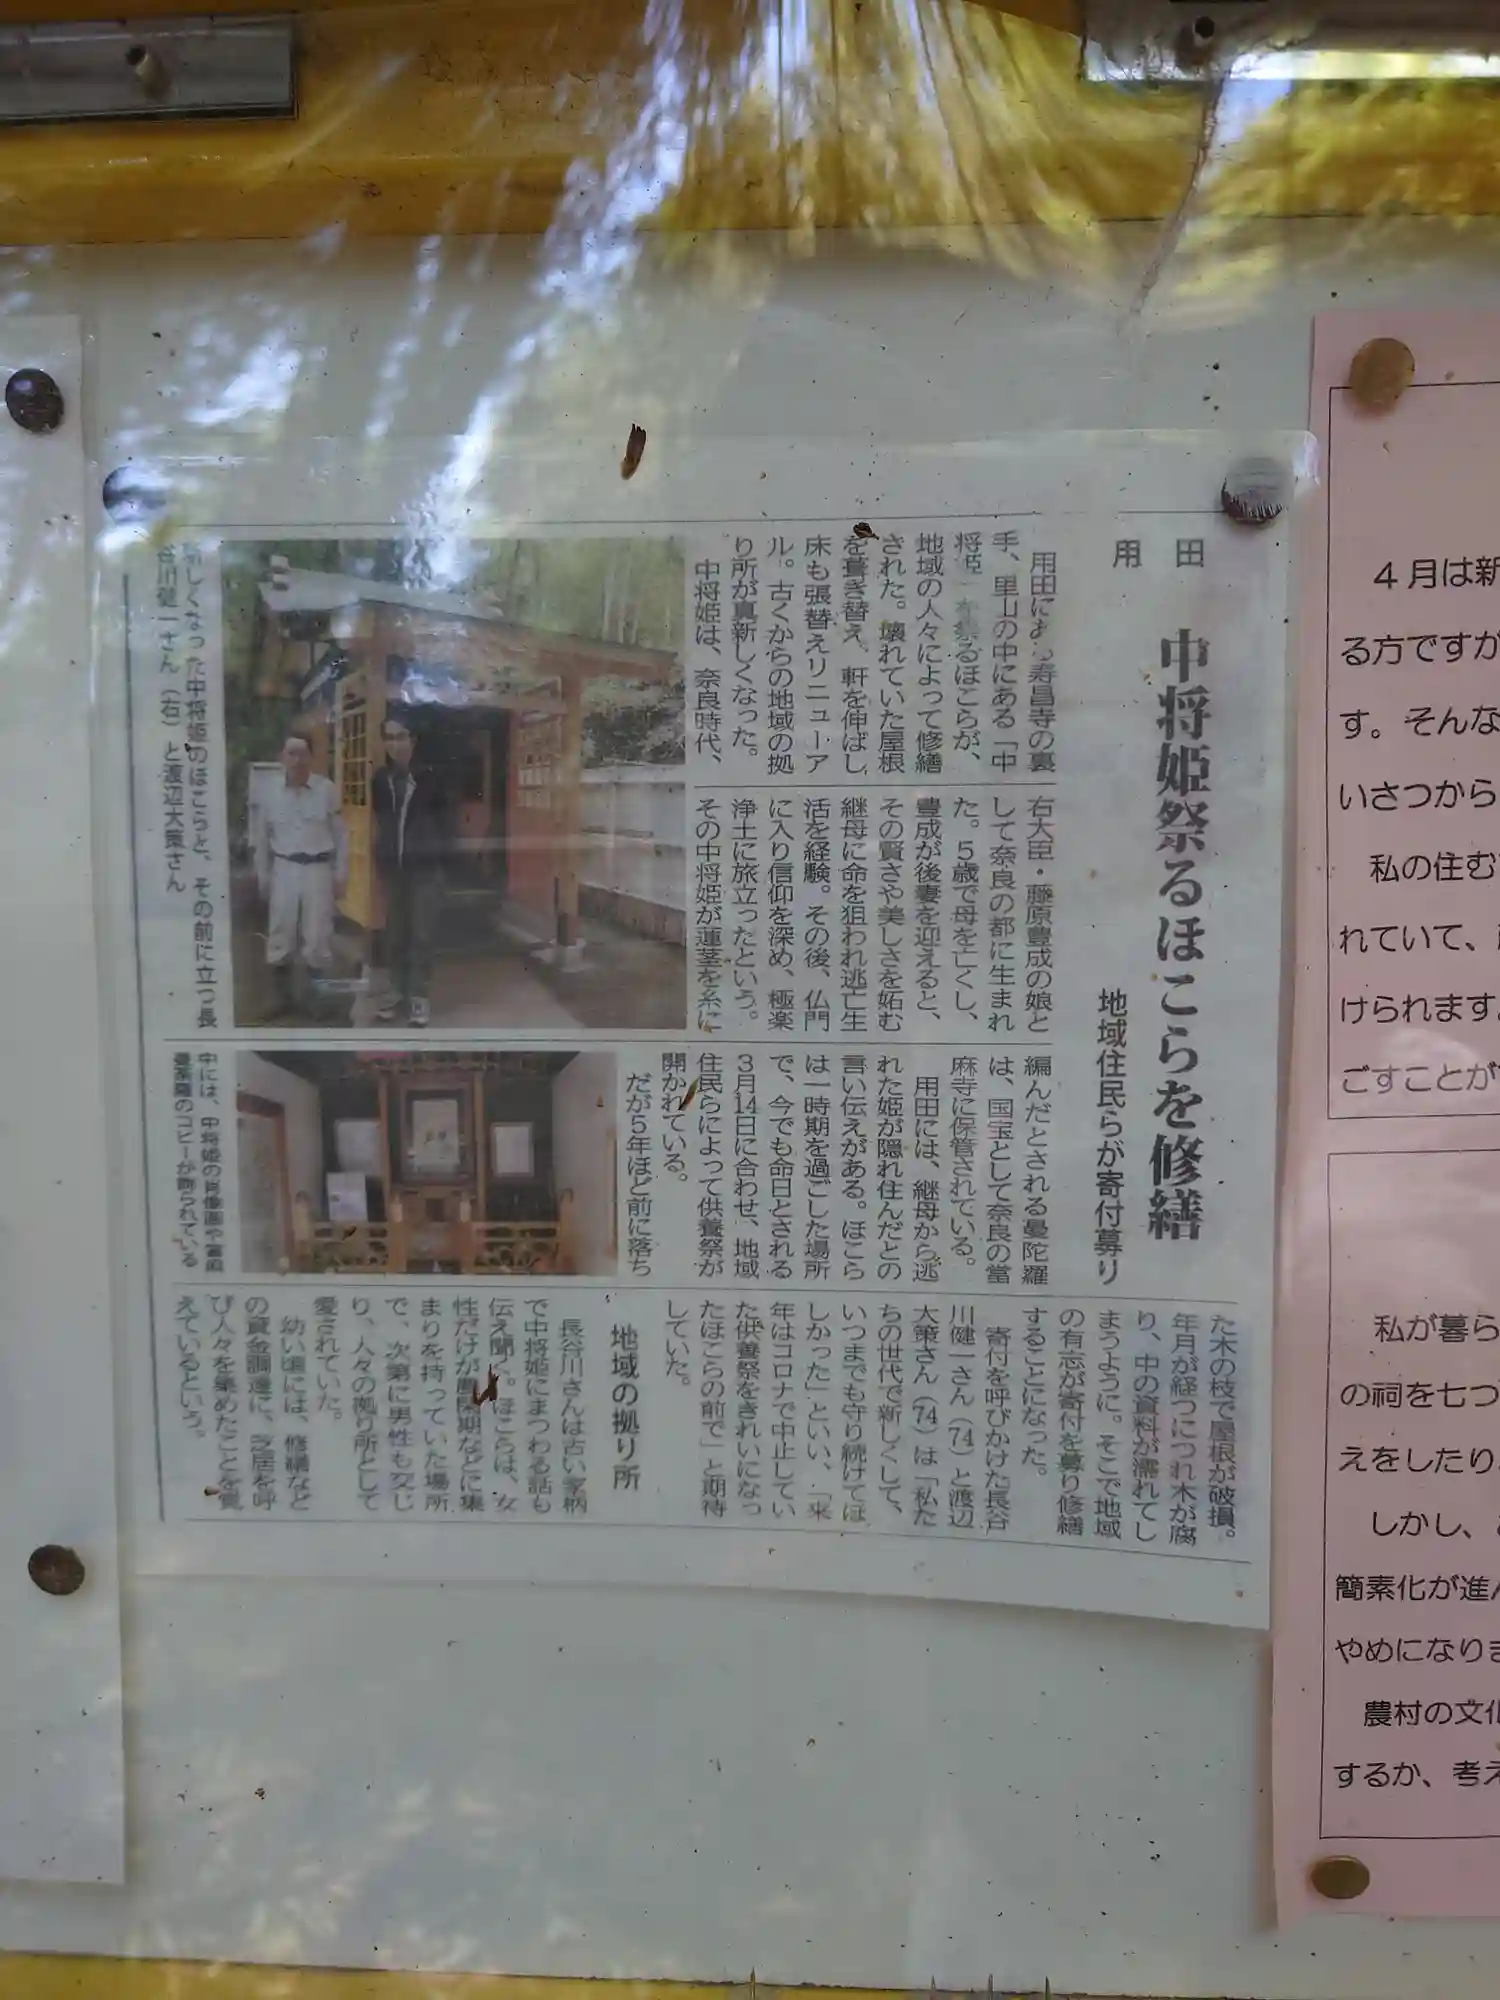 用田
中将姫祭るほこらを修繕
地域住民らが寄付募り
用田にある寿昌寺の裏
手、里山の中にある「中
将姫」を祭るほこらが、
地域の人々によって修繕
された。壊れていた屋根
を葺ぎ替え、軒を伸ばし、
床も張替えリニューア
ル。古くからの地域の拠
り所が真新しくなった。
中将姫は、奈良時代、
右大臣・藤原豊成の娘と
して奈良の都に生まれ
た。5歳で母を亡くし、
豊成が後妻を迎えると、
その賢さや美しさを妬む
継母に命を狙われ逃亡生
活を経験。その後、仏門
に入り信仰を深め、極楽
浄土に旅立ったという。
その中将姫が蓮茎を糸に
編んだとされる曼陀羅
は、国宝として奈良の當
麻寺に保管されている。
用田には、継母から逃
れた姫が隠れ住んだとの
言い伝えがある。ほこら
は一時期を過ごした場所
で、今でも命日とされる
3月14日に合わせ、地域
住民らによって供養祭が
開かれている。
だが5年ほど前に落ち
た木の枝で屋根が破損。
年月が経つにつれ木が腐
り、中の資料が濡れてし
まうように。そこで地域
の有志が寄付を募り修繕
することになった。
寄付を呼びかけた長谷
川健一さん（74）と渡辺
大策さん（74）は「私た
ちの世代で新しくして、
いつまでも守り続けてほ
しかった」といい、「来
年はコロナで中止してい
た供養祭をきれいになっ
たほこらの前で」と期待
していた。
地域の拠り所
長谷川さんは古い家柄
で中将姫にまつわる話も
伝え聞く。ほこらは、女
性だけが農閑期などに集
まりを持っていた場所
で、次第に男性も交じ
り、人々の拠り所として
愛されていた。
幼い頃には、修繕など
の資金調達に、芝居を呼
び人々を集めたことを覚
えているという。
新しくなった中将姫のほこらと、その前に立つ長
谷川健一さん（右）と渡辺大策さん
中には、中将姫の肖像画や當麻
曼荼羅のコピーが飾られている
4月は新
る方ですが
す。そんな
いさつから
私の住む
れていて、
けられます。
ごすことが
私が暮ら
の祠を七つ
えをしたり
しかし、
簡素化が進
やめになりま
農村の文化
するか、考え